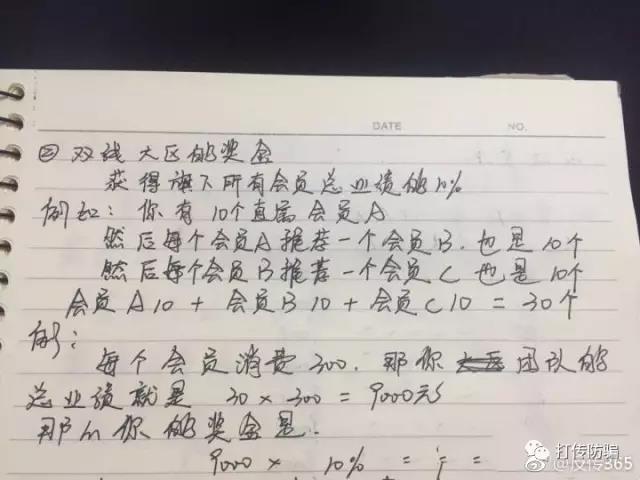 DATE NO.
② 双线大区的奖金
获得旗下所有会员总业绩的10%
例如：你有10个直属会员A
然后每个会员A推荐一个会员B.也是10个
然后每个会员B推荐一个会员C 也是10个
会员A10 + 会员B10 + 会员C10 = 30个
例：
每个会员消费300.那你团队的
总业绩就是 30×300=9000元
那么你的奖金是.
9000 × 10% =
打传防骗
@反传365